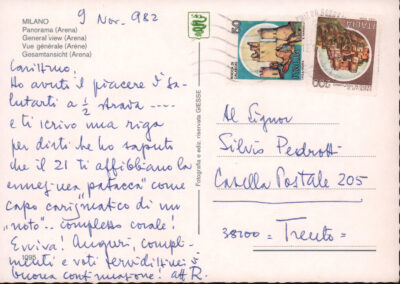 9 Nov. 982
MILANO
Panorama (Arena)
General view (Arena)
Vue générale (Arène)
Gesamtansicht (Arena)
Carissimo,
Ho avuto il piacere di sa-
lutarti a ½ strada ----
e ti scrivo una riga
per dirti che ho saputo
che il 21 ti affibbiano la
ennesima "patacca" come
capo carismatico di un
"noto".. complesso corale!
Evviva! Auguri, compli-
menti e voti fervidissimi di
buona continuazione! aff R.
1095
Fotografia e ediz. riservata GIESSE
ITALIA
Al Signor
Silvio Pedrotti
Casella Postale 205
38100 = Trento =